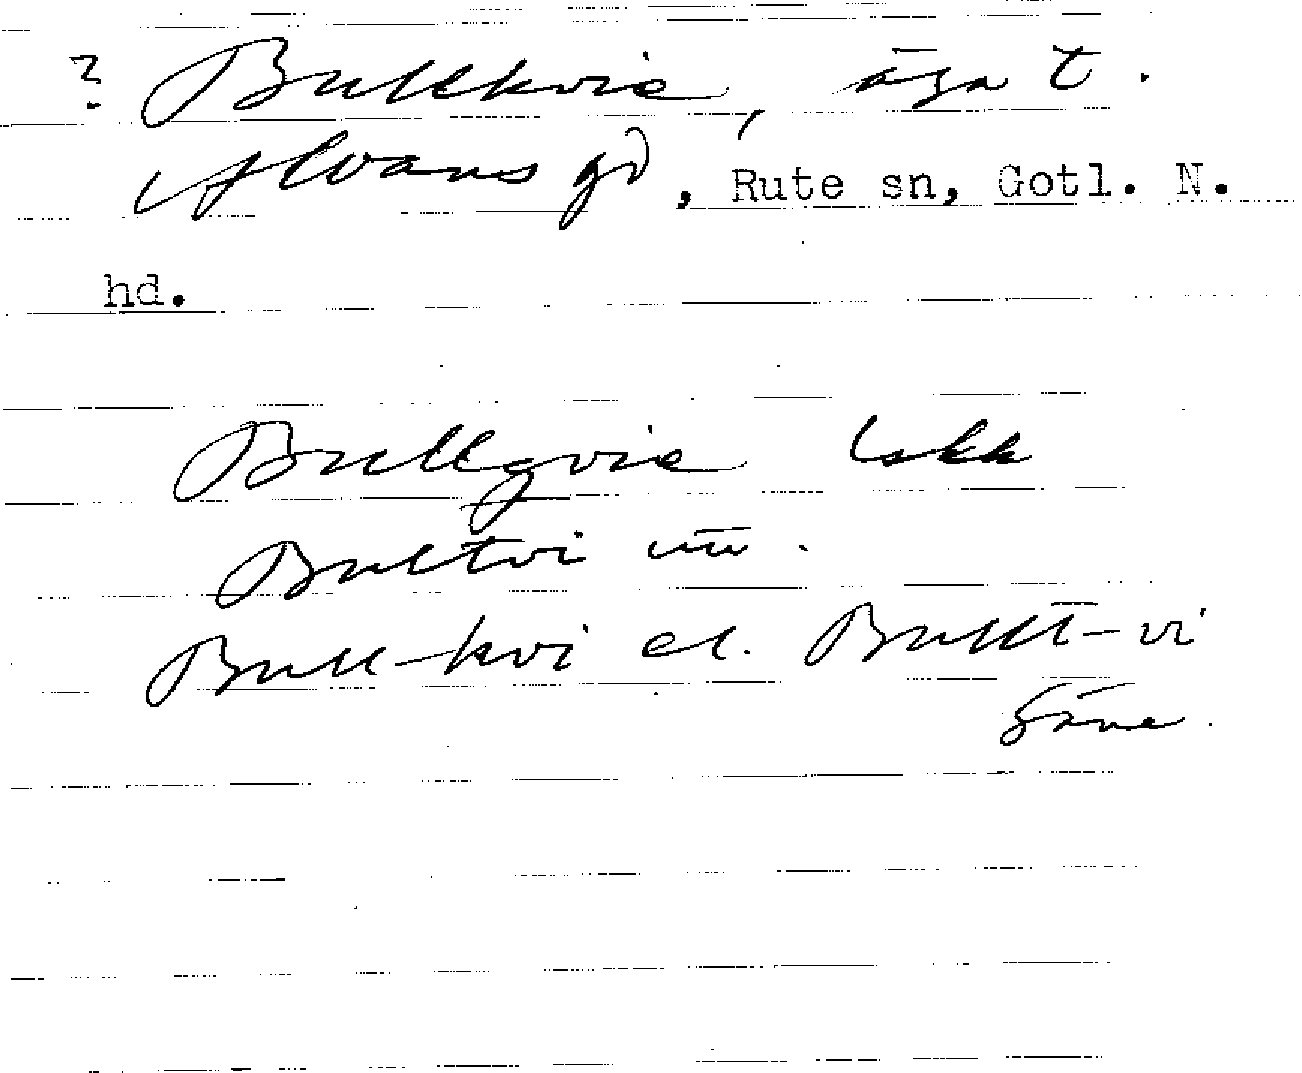 ? Bullkvie, äga t.
Alvans gd, Rute sn, Gotl. N.
hd.
Bullgvie lskk
Bultvi uū.
Bull-kvi el. Bullt-vi
Säve.